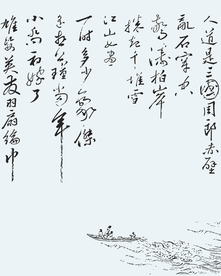 人道是三國周郎赤壁
亂石穿空
驚濤拍岸
捲起千堆雪
江山如畫
一時多少豪傑
遙想公瑾當年
小喬初嫁了
雄姿英發羽扇綸巾